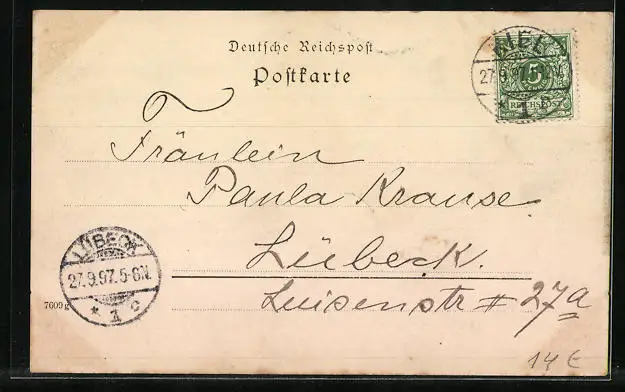 Deutsche Reichspost
Postkarte
KIEL
27.9.97.
* 1 c
5
REICHSPOST
Fräulein
Paula Krause
Lübeck.
Luisenstr # 27a
LÜBECK
27.9.97.5-6N.
* 1 c
7609 g
14 €